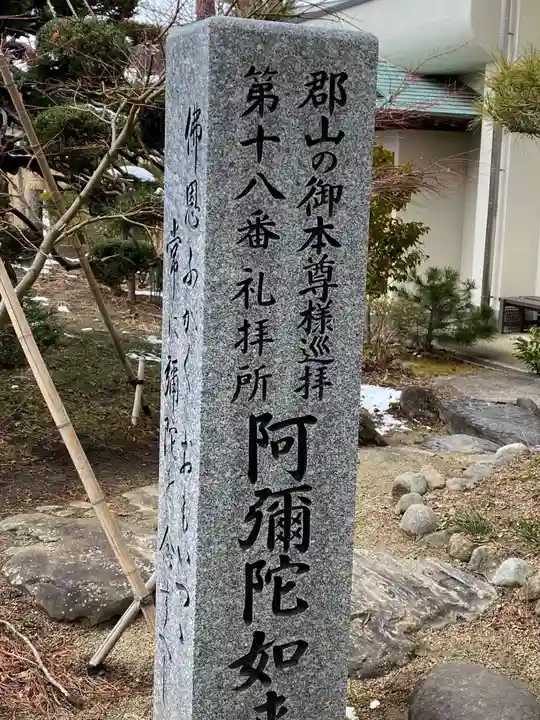 郡山の御本尊様巡拝
第十八番礼拝所
阿彌陀如来
佛恩ふかくおもいつゝ
常に彌陀を念ずべし